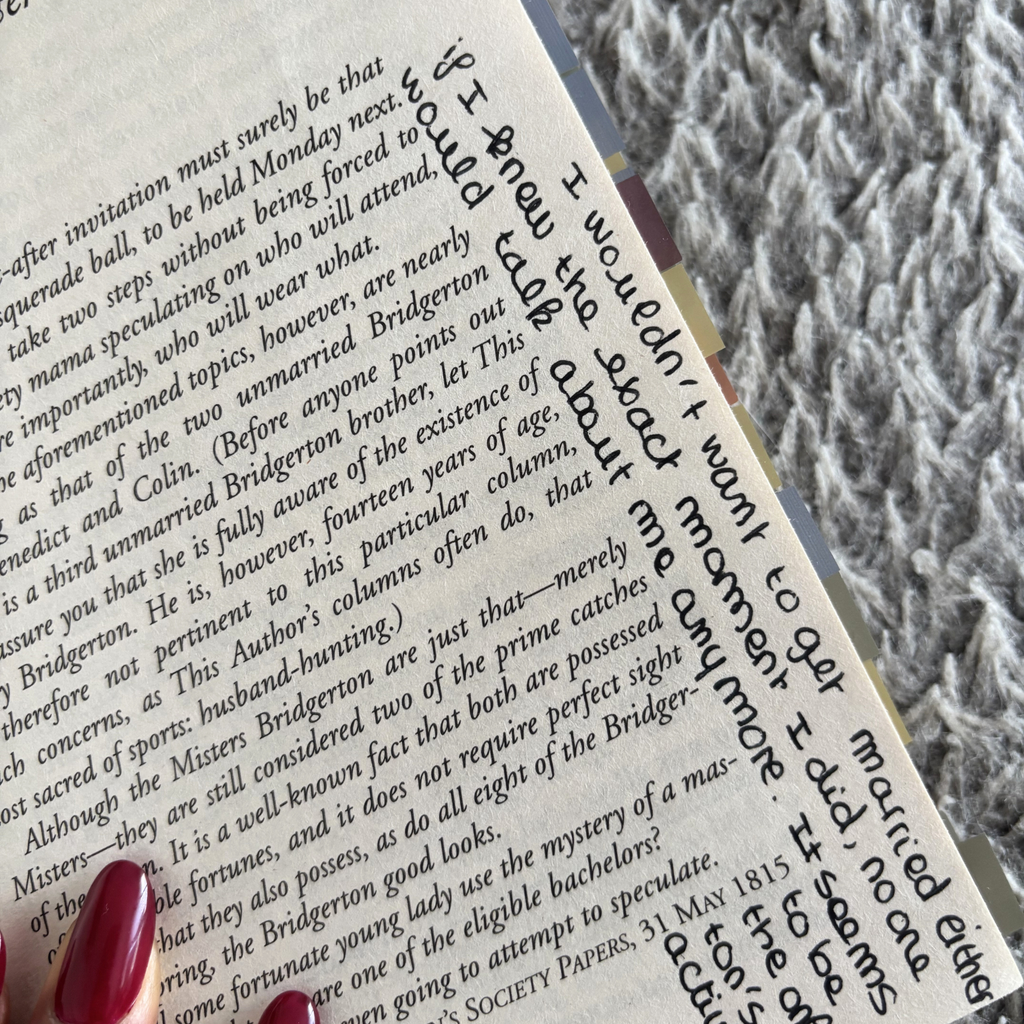 -after invitation must surely be that
squerade ball, to be held Monday next.
take two steps without being forced to
ety mama speculating on who will attend,
re importantly, who will wear what.
he aforementioned topics, however, are nearly
g as that of the two unmarried Bridgerton
enedict and Colin. (Before anyone points out
is a third unmarried Bridgerton brother, let This
assure you that she is fully aware of the existence of
y Bridgerton. He is, however, fourteen years of age,
therefore not pertinent to this particular column,
ch concerns, as This Author's columns often do, that
ost sacred of sports: husband-hunting.)
Although the Misters Bridgerton are just that—merely
Misters—they are still considered two of the prime catches
of the n. It is a well-known fact that both are possessed
ble fortunes, and it does not require perfect sight
that they also possess, as do all eight of the Bridger-
ring, the Bridgerton good looks.
some fortunate young lady use the mystery of a mas-
are one of the eligible bachelors?
ven going to attempt to speculate.
N'S SOCIETY PAPERS, 31 MAY 1815
I wouldn't want to get married either
if I knew the exact moment I did, no one
would talk about me anymore. It seems
to be
the
ton's